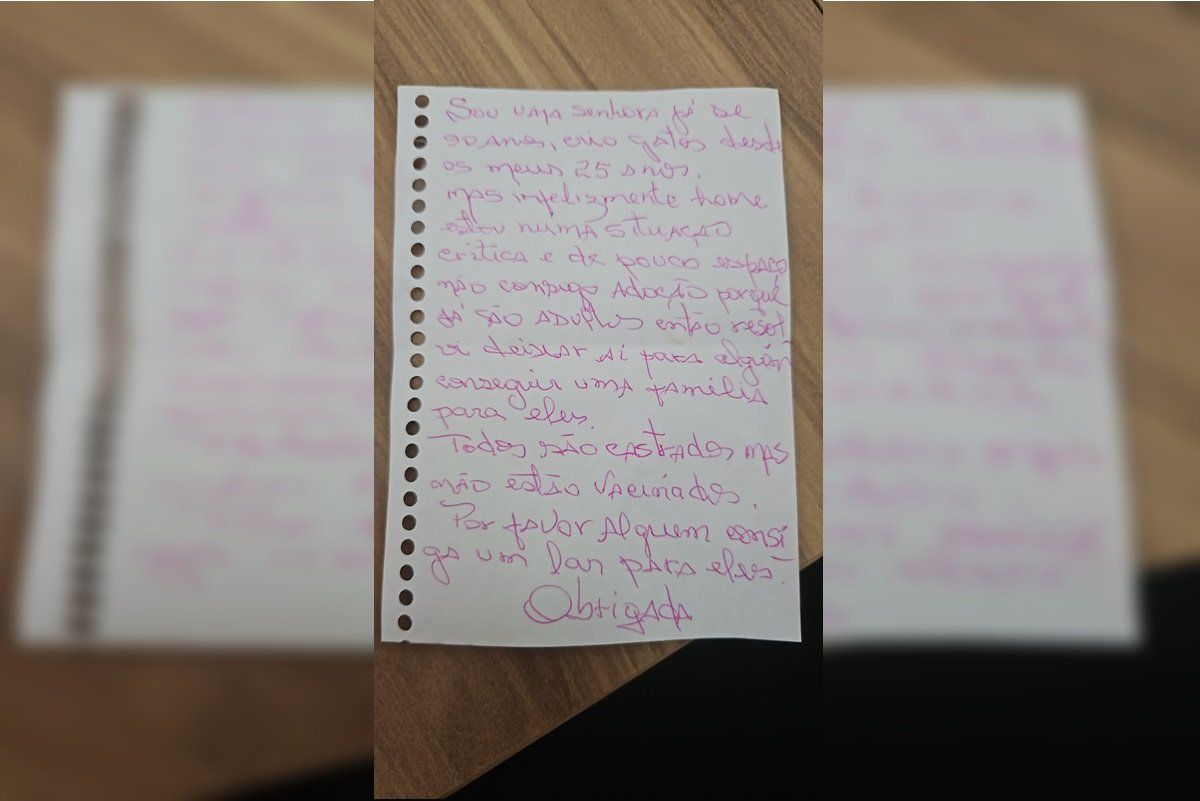 Sou uma senhora já de
90 anos, crio gatos desde
os meus 25 anos.
mas infelizmente home
estou numa situação
critica e de pouco espaço
não consigo adoção porque
já são adultos então resol
vi deixar aí para alguém
conseguir uma família
para eles.
Todos são castrados mas
não estão vacinados.
Por favor alguem consi
ga um lar para eles.
Obrigada